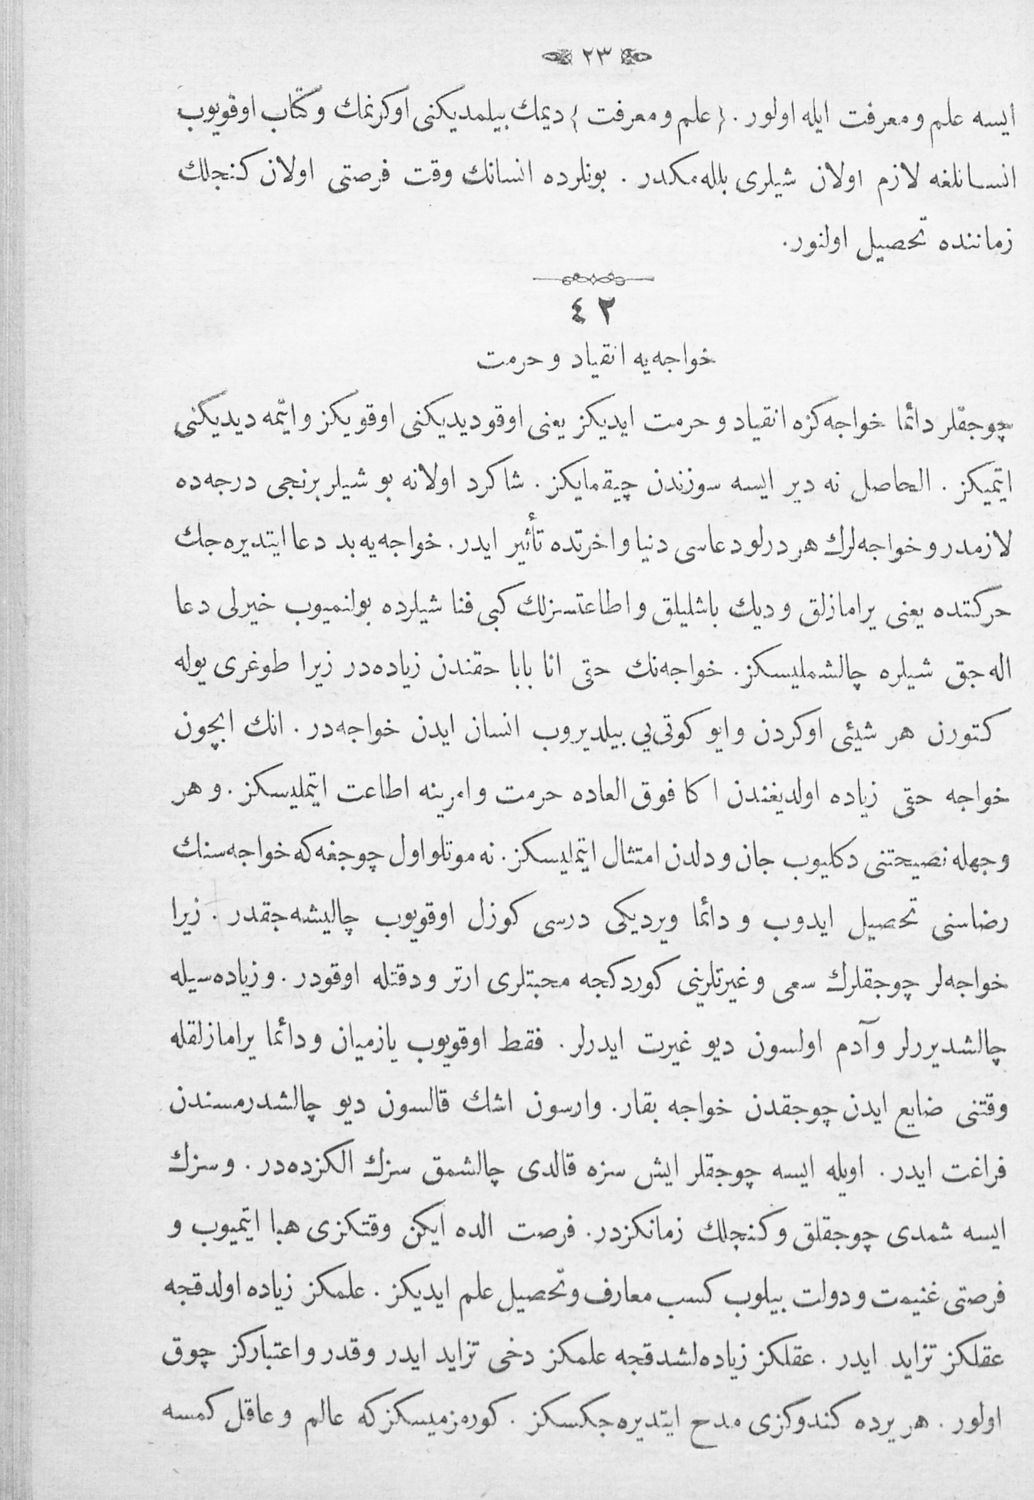 ٢٣
ايسه علم و معرفت ايله اولور . { علم و معرفت } ديمك بيلمديكنى اوكرنمك و كتاب اوقويوب
انسانلغه لازم اولان شيلرى بللهمكدر . بونلرده انسانك وقت فرصتى اولان كنجلك
زماننده تحصيل اولنور.
٢٤
خواجهيه انقياد و حرمت
چوجقلر دائما خواجهكزه انقياد و حرمت ايديكز يعنى اوقو ديديكنى اوقويكز و ايتمه ديديكنى
ايتميكز . الحاصل نه دير ايسه سوزندن چيقمايكز . شاكرد اولانه بو شيلر برنجى درجهده
لازمدر و خواجهلرك هر درلو دعاسى دنيا و اخرتده تأثير ايدر . خواجهيه بد دعا ايتديرهجك
حركتده يعنى يرامازلق و ديك باشليلق و اطاعتسزلك كبى فنا شيلرده بولنميوب خيرلى دعا
الهجق شيلره چالشمليسكز . خواجهنك حتى انا بابا حقندن زيادهدر زيرا طوغرى يوله
كتورن هر شيئى اوكردن و ايو كوتىيى بيلديروب انسان ايدن خواجهدر . انك ايچون
خواجه حتى زياده اولديغندن اكا فوق العاده حرمت و امرينه اطاعت ايتمليسكز . و هر
وجهله نصيحتنى دكليوب جان و دلدن امتثال ايتمليسكز . نه موتلو اول چوجغه كه خواجهسنك
رضاسنى تحصيل ايدوب و دائما ويرديكى درسى كوزل اوقويوب چاليشهجقدر . زيرا
خواجهلر چوجقلرك سعى و غيرتلرينى كوردكجه محبتلرى ارتر و دقتله اوقودر . و زيادهسيله
چالشديررلر و آدم اولسون ديو غيرت ايدرلر . فقط اوقويوب يازميان و دائما يرامازلقله
وقتنى ضايع ايدن چوجقدن خواجه بقار . وارسون اشك قالسون ديو چالشدرمسندن
فراغت ايدر . اويله ايسه چوجقلر ايش سزه قالدى چالشمق سزك الكزدهدر . و سزك
ايسه شمدى چوجقلق و كنجلك زمانكزدر . فرصت الده ايكن وقتكزى هبا ايتميوب و
فرصتى غنيمت و دولت بيلوب كسب معارف و تحصيل علم ايديكز . علمكز زياده اولدقجه
عقلكز تزايد ايدر . عقلكز زيادهلشدقجه علمكز دخى تزايد ايدر و قدر و اعتباركز چوق
اولور . هر يرده كندوكزى مدح ايتديرهجكسكز . كورهزميسكز كه عالم و عاقل كمسه